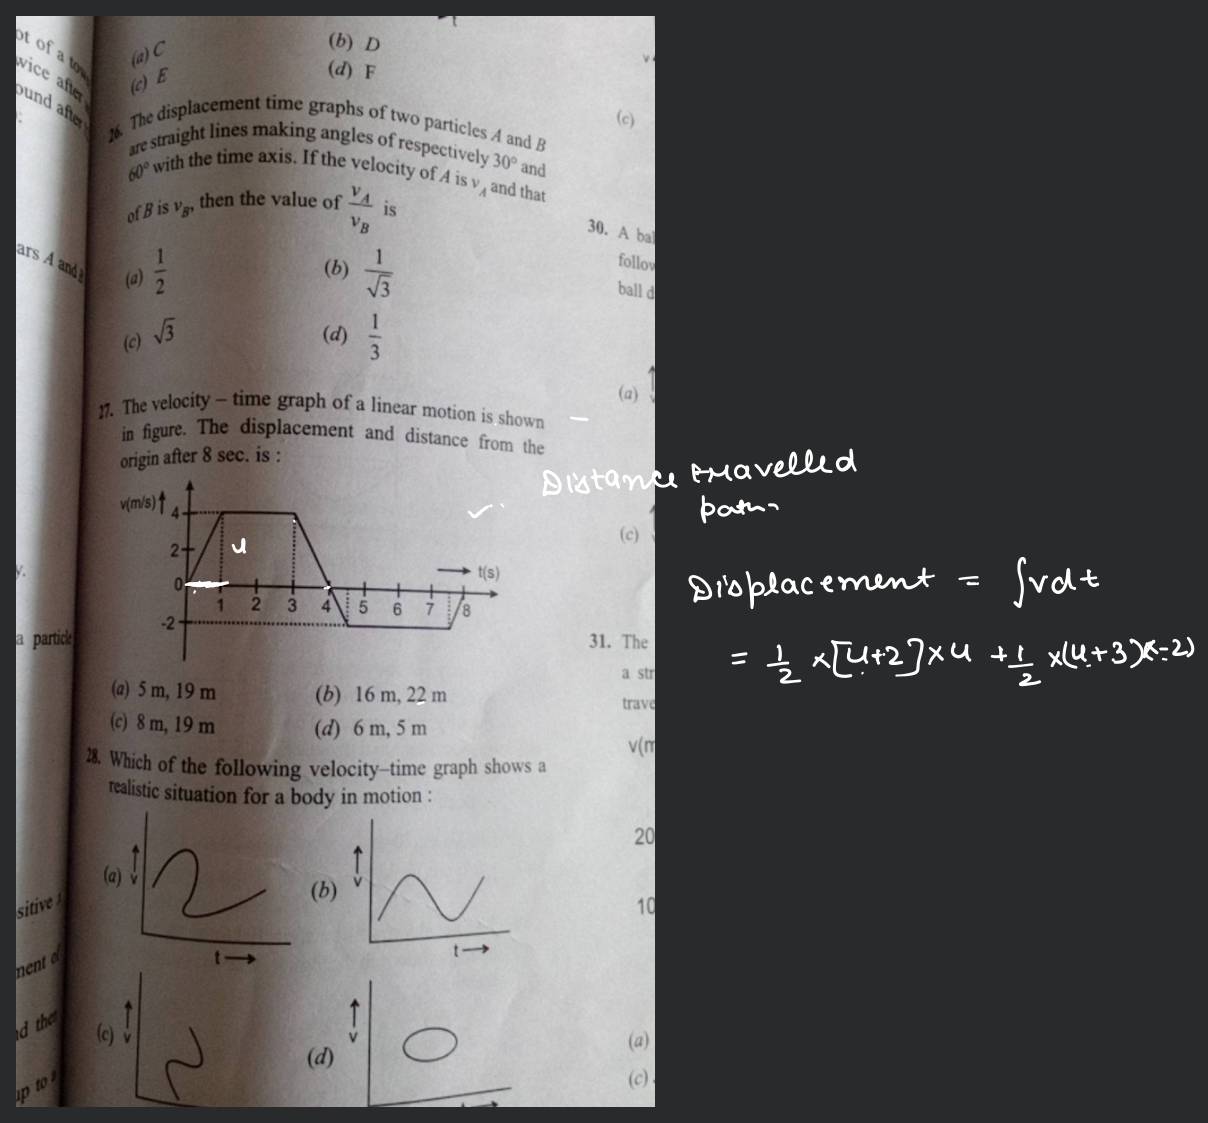 ot of a
wice after
ound after
ars A and
y.
a particle
sitive
ment of
nd then
up to a
(a) C
(b) D
(c) E
(d) F
26. The displacement time graphs of two particles A and B
are straight lines making angles of respectively 30° and
60° with the time axis. If the velocity of A is v_A and that
of B is v_B, then the value of v_A/v_B is
(a) 1/2
(b) 1/√3
(c) √3
(d) 1/3
27. The velocity – time graph of a linear motion is shown
in figure. The displacement and distance from the
origin after 8 sec. is :
v(m/s)
4
2
0
-2
4
1 2 3 4 5 6 7 8
t(s)
(a) 5 m, 19 m
(b) 16 m, 22 m
(c) 8 m, 19 m
(d) 6 m, 5 m
28. Which of the following velocity–time graph shows a
realistic situation for a body in motion :
(a) v
t
(b) v
t
(c) v
(d) v
t
(c)
30. A bal
follow
ball d
(a)
(c)
31. The
a str
trave
v(m
20
10
(a)
(c)
Distance travelled
path
Displacement = ∫vdt
= 1/2 ×[4+2]×4 + 1/2 ×(4+3)×(-2)